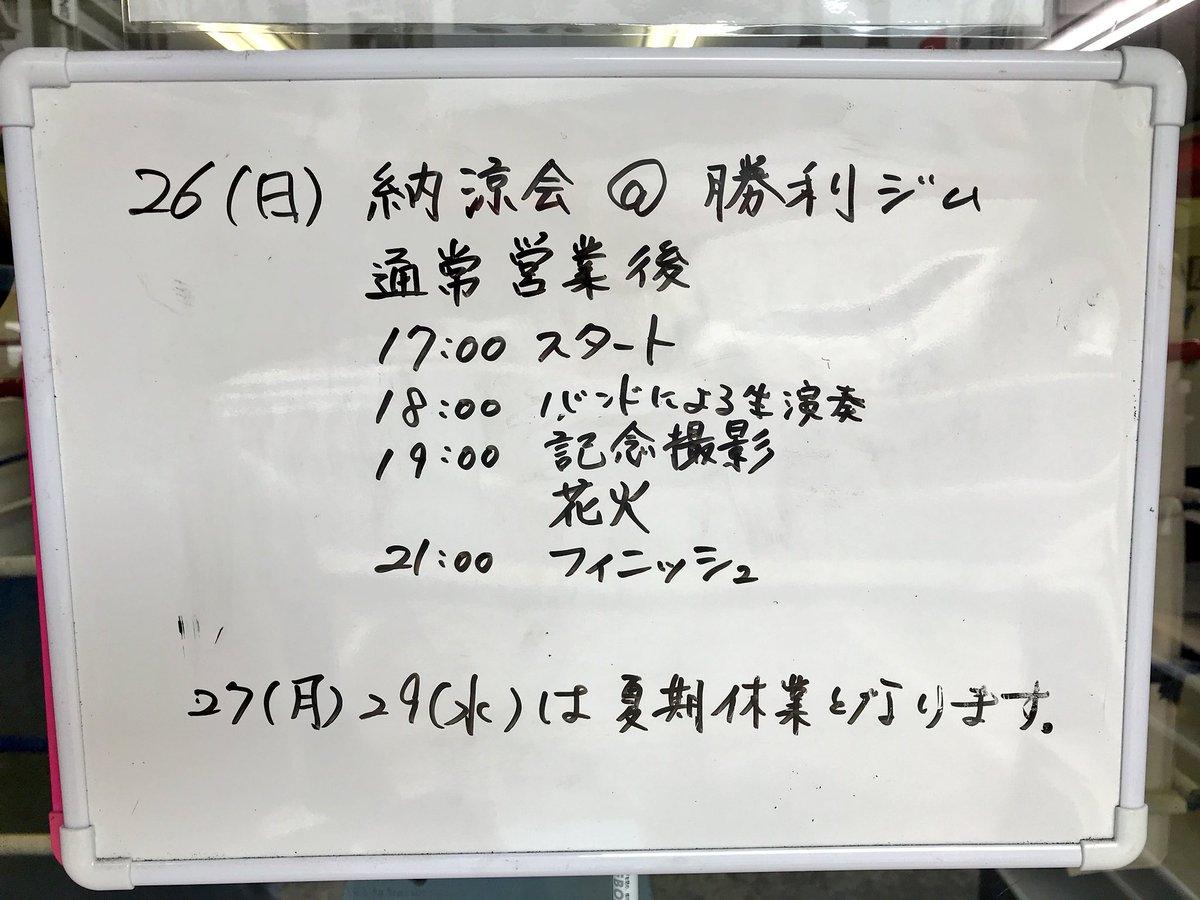 26(日) 納涼会@勝利ジム
通常営業後
17:00 スタート
18:00 バンドによる生演奏
19:00 記念撮影
花火
21:00 フィニッシュ
27(月)29(水)は夏期休業となります。